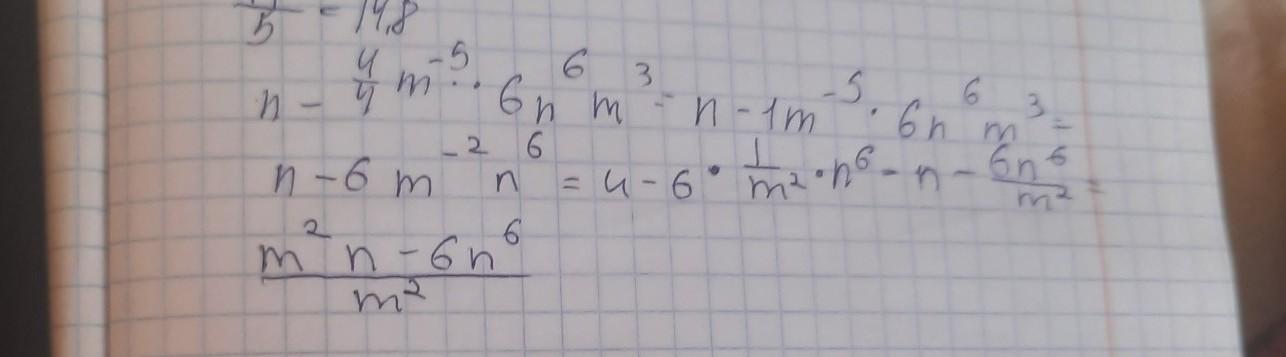 5 = 14,8
n - 4/4 m⁻⁵ · 6n⁶ m³ = n - 1m⁻⁵ · 6n⁶ m³ =
n - 6 m⁻² n⁶ = n - 6 · 1/m² · n⁶ = n - 6n⁶/m² =
m² n - 6n⁶ / m²